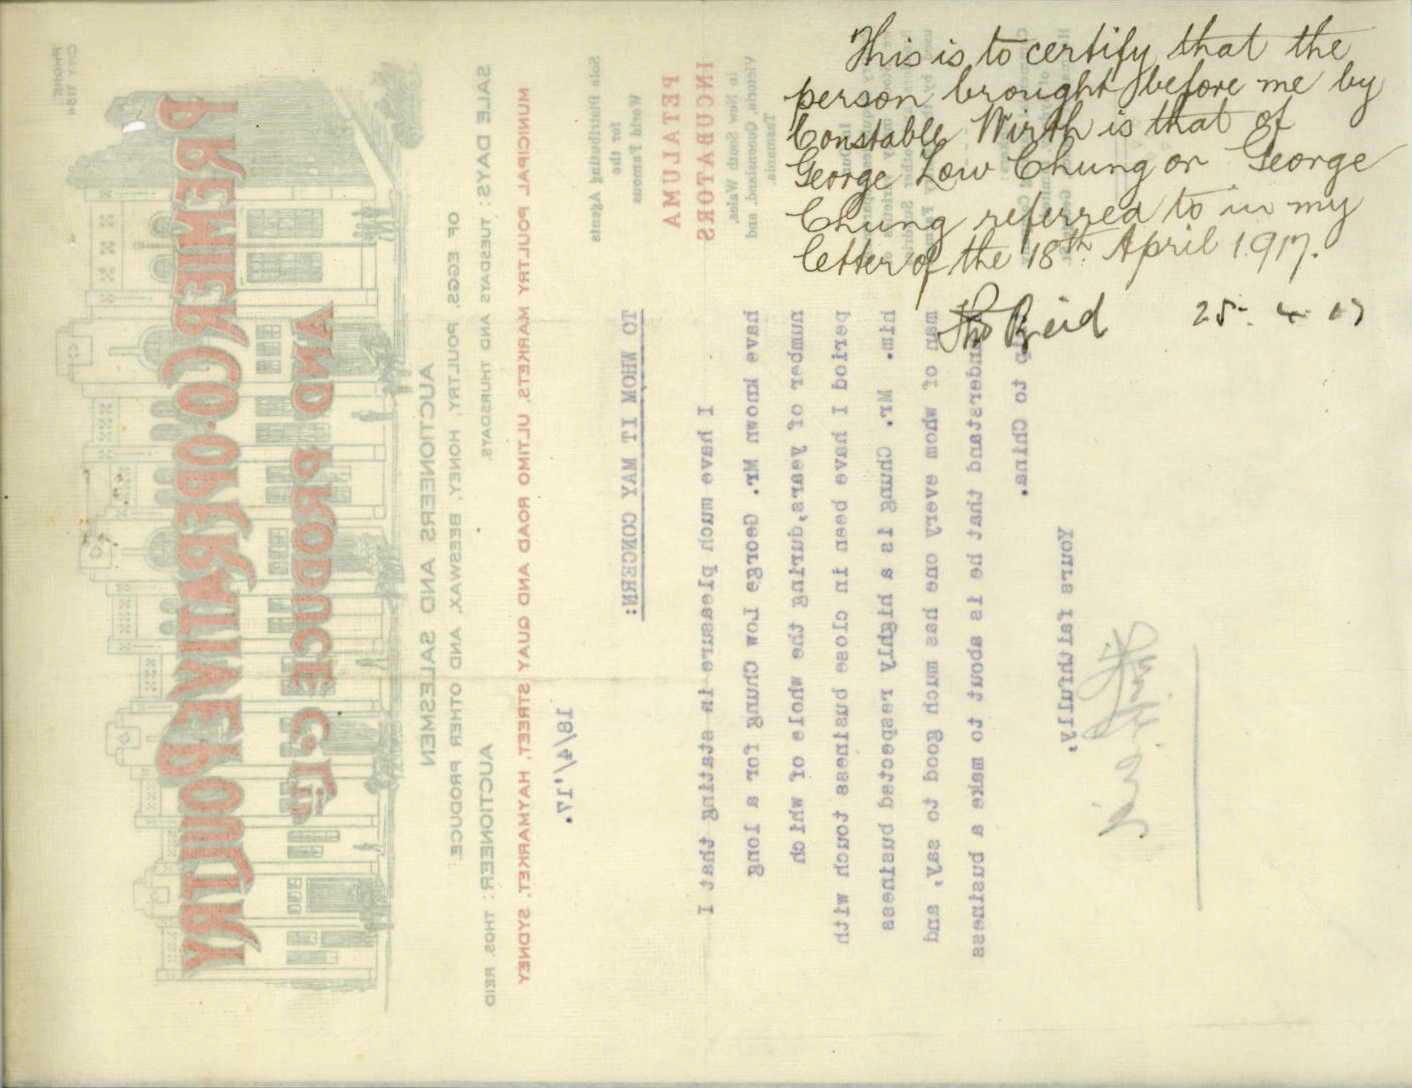 This is to certify that the
person brought before me by
Constable Wirth is that of
George Low Chung or George
Chung referred to in my
letter of the 18th April 1917.
Thos Reid 25. 4. 17
CITY 1184
PHONE
PREMIER CO-OPERATIVE POULTRY
AND PRODUCE Co. Ltd.
AUCTIONEERS AND SALESMEN
OF EGGS, POULTRY, HONEY, BEESWAX, AND OTHER PRODUCE.
SALE DAYS: TUESDAYS AND THURSDAYS. AUCTIONEER: THOS. REID
MUNICIPAL POULTRY MARKETS, ULTIMO ROAD AND QUAY STREET, HAYMARKET, SYDNEY
18/4/'17.
Sole Distributing Agents
for the
World Famous
PETALUMA
INCUBATORS
in New South Wales,
Victoria, Queensland, and
Tasmania.
TO WHOM IT MAY CONCERN:
I have much pleasure in stating that I
have known Mr. George Low Chung for a long
number of years, during the whole of which
period I have been in close business touch with
him. Mr. Chung is a highly respected business
man of whom every one has much good to say, and
understand that he is about to make a business
to China.
Yours faithfully,